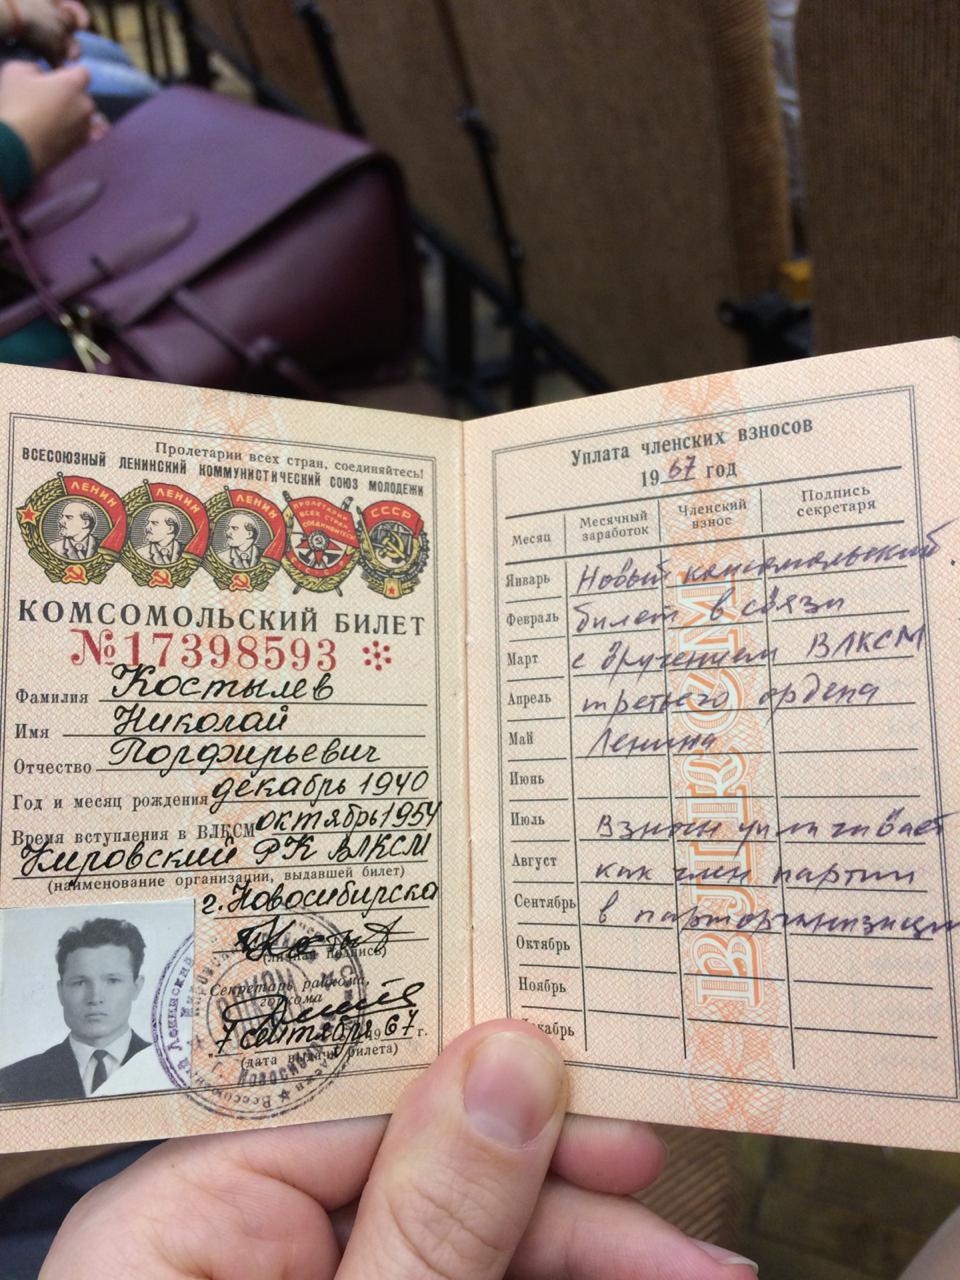 Пролетарии всех стран, соединяйтесь!
ВСЕСОЮЗНЫЙ ЛЕНИНСКИЙ КОММУНИСТИЧЕСКИЙ СОЮЗ МОЛОДЕЖИ
ЛЕНИН ЛЕНИН ЛЕНИН ПРОЛЕТАРИИ ВСЕХ СТРАН СОЕДИНЯЙТЕСЬ СССР
КОМСОМОЛЬСКИЙ БИЛЕТ
№17398593
Фамилия Костылев
Имя Николай
Отчество Порфирьевич
Год и месяц рождения декабрь 1940
Время вступления в ВЛКСМ октябрь 1954
Кировский РК ВЛКСМ
(наименование организации, выдавшей билет)
г. Новосибирска
(личная подпись)
Секретарь райкома,
горкома
"7 сентября 1967 г.
(дата выдачи билета)
Уплата членских взносов
1967 год
Месяц Месячный заработок Членский взнос Подпись секретаря
Январь Новый комсомольский
Февраль билет в связи
Март с вручением ВЛКСМ
Апрель третьего ордена
Май Ленина
Июнь
Июль Взносы уплачивает
Август как член партии
Сентябрь в парторганизации
Октябрь
Ноябрь
Декабрь
ВЛКСМ